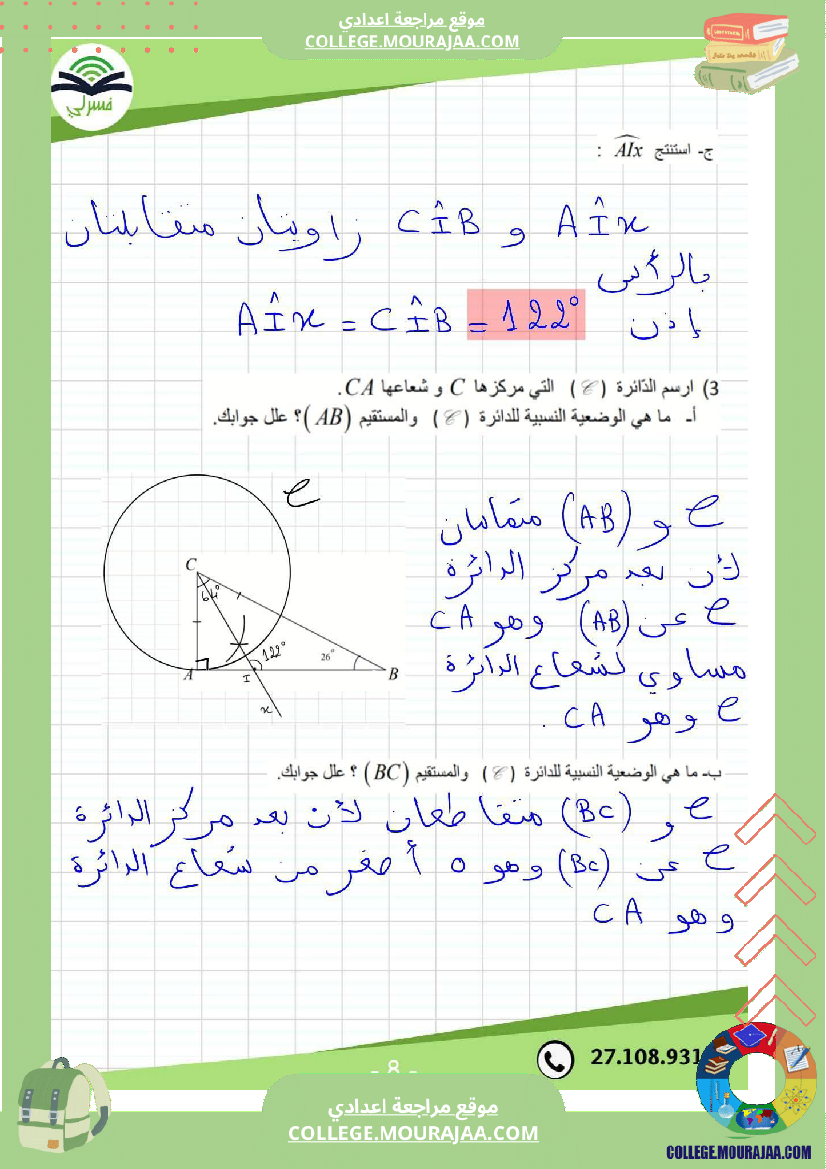 موقع مراجعة اعدادي
COLLEGE.MOURAJAA.COM
فسرلي
ج- استنتج AIx :
AÎx و CÎB زاويتان متقابلتان
بالرأس
إذن AÎx = CÎB = 122°
3) ارسم الدائرة (𝒞) التي مركزها C و شعاعها CA.
أ- ما هي الوضعية النسبية للدائرة (𝒞) والمستقيم (AB)؟ علل جوابك.
C
64°
A
I
122°
26°
B
x
𝒞
𝒞 و (AB) متماسان
لأن بعد مركز الدائرة
𝒞 عن (AB) وهو CA
مساوي لشعاع الدائرة
𝒞 وهو CA .
ب- ما هي الوضعية النسبية للدائرة (𝒞) والمستقيم (BC) ؟ علل جوابك.
𝒞 و (BC) متقاطعان لأن بعد مركز الدائرة
𝒞 عن (BC) وهو 0 أصغر من شعاع الدائرة
وهو CA
- 8 -
27.108.931
موقع مراجعة اعدادي
COLLEGE.MOURAJAA.COM
COLLEGE.MOURAJAA.COM